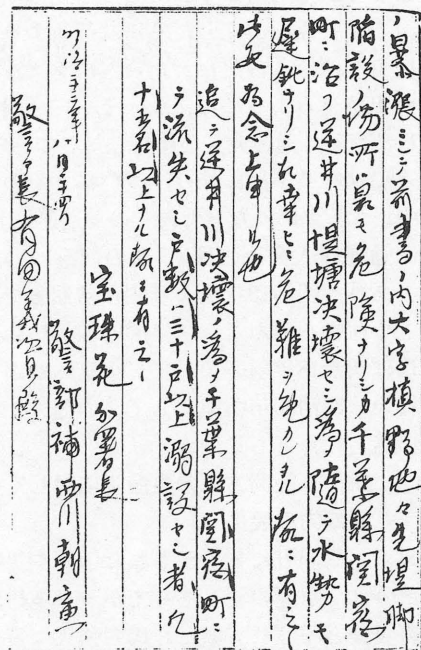 ノ暴漲ミシテ前書ノ内大字槙野地々先堤脚
陥設ノ場所ハ最モ危険ナリシカ千葉縣関宿
町ニ沿フ逆井川堤塘决壊セシ為メ隨テ水勢モ
遅鈍ナリシ故幸ヒニ危難ヲ免カレタル趣ニ有之
此段為念上申候也
追テ逆井川决壊ノ為メ千葉縣関宿町ニ
テ流失セシ戸数ハ三十戸以上溺設セシ者凡
十五名以上ナル趣ニ有之
宝珠花分署長
明治二十三年八月二十四日
警部補西川朝
警部長有田義資殿